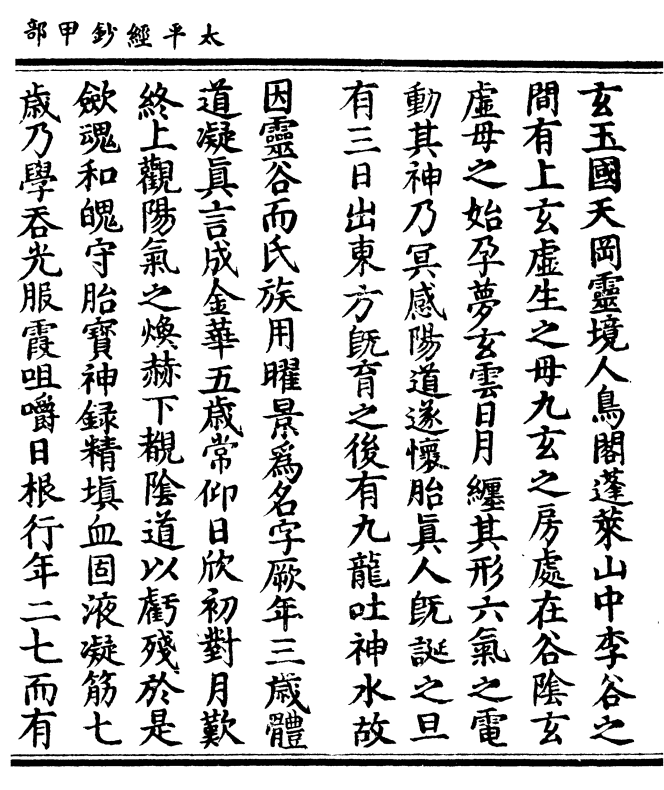 太平經鈔甲部
玄玉國天岡靈境人鳥閣蓬萊山中李谷之
間有上玄虛生之母九玄之房處在谷陰玄
虛母之始孕夢玄雲日月纏其形六氣之電
動其神乃冥感陽道遂懷胎眞人旣誕之旦
有三日出東方旣育之後有九龍吐神水故
因靈谷而氏族用曜景爲名字厥年三歲體
道凝眞言成金華五歲常仰日欣初對月歎
終上觀陽氣之煥赫下覩陰道以虧殘於是
斂魂和魄守胎寶神録精塡血固液凝筋七
歲乃學吞光服霞咀嚼日根行年二七而有